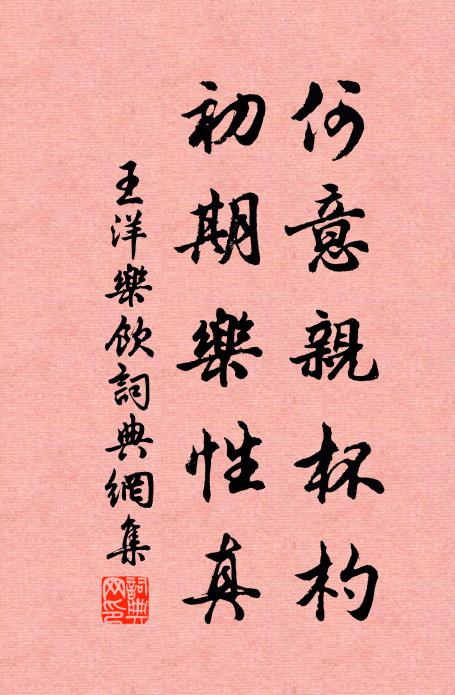 何意親杯杓
初期樂性真
王洋樂飲詞典網集
詞典
網印